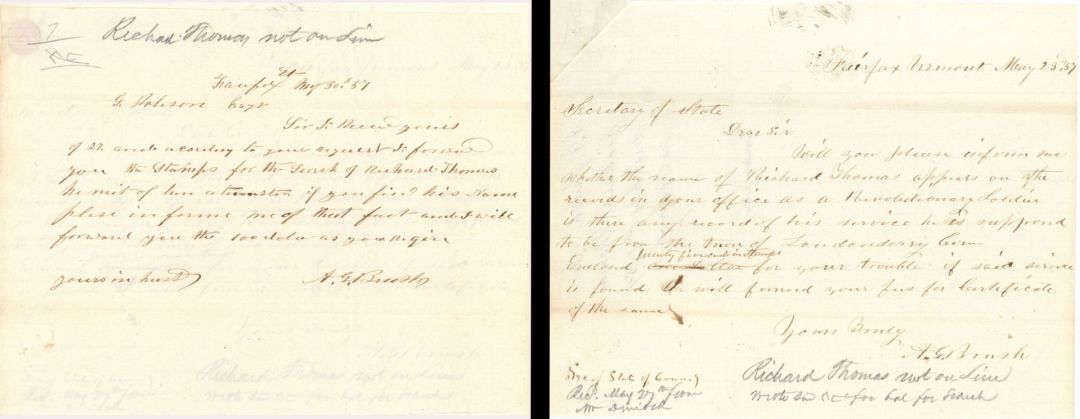 7
Richard Thomas not on Line
Vt
Fairfax May 30th 57
G. Robison Esqr
Sir I Recvd yours
of 27 and acording to your request I forward
you the Stamps for the Serch of Richard Thomas
he mit of ben a teamster if you find his Name
plese in forme me of that fact and I will
forward you the one doller as you Reqire
yours in hast A. G. Brush
Fairfax Vermont May 25. 57
Secretary of State
Dear Sir
Will you please inform me
whether the name of Richard Thomas appears on the
records in your office as a Revolutionary Soldier
is there any record of his service he is supposed
to be from the town of Londonderry Conn
twenty five cents in stamps
Enclosed for your trouble if said service
is found Ile will forward your fees for Certificate
of the same
Yours Truly
A. G. Brush
Secy of State of
Recd. May 27th from
Mr Dimock
Richard Thomas not on Line
Wrote for bal for search